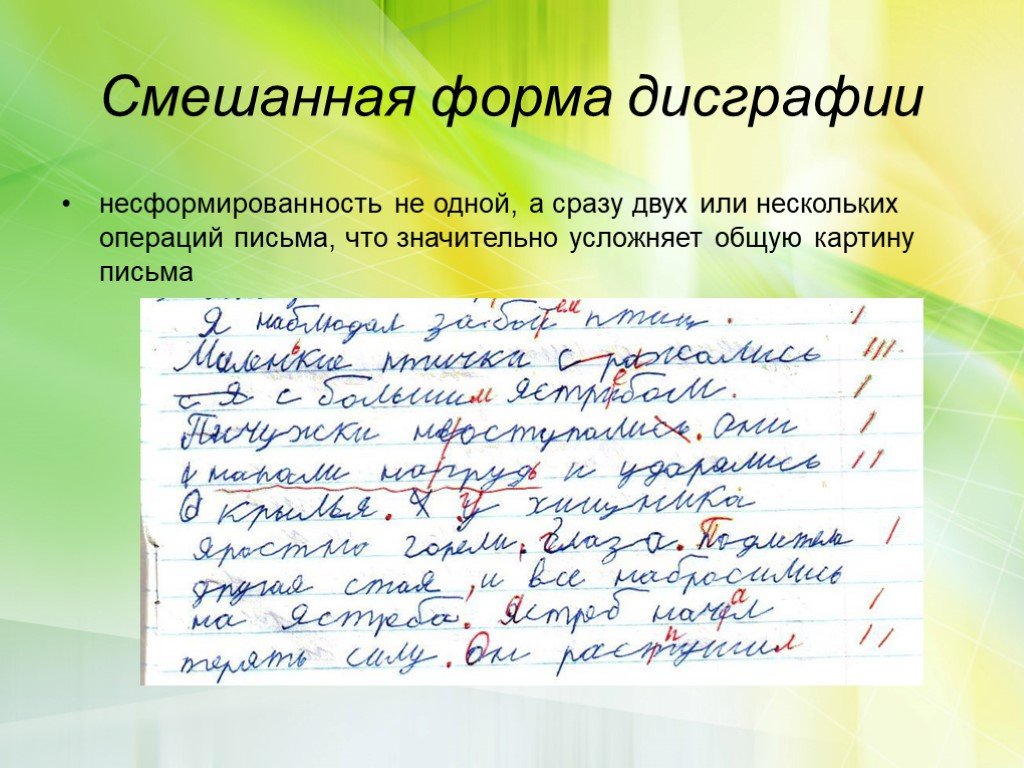 Смешанная форма дисграфии
• несформированность не одной, а сразу двух или нескольких
операций письма, что значительно усложняет общую картину
письма
Я наблюдал за бой ем птиц. |
Маленькие птички с ражались |||
с я с большим ястребом. |
Пичужки не оступались. Они |
напали на грудь и ударялись ||
о крылья. У хищника
яростно горели, глаза. Подлетела |
другая стая, и все набросились
на ястреба. Ястреб начал |
терять силу. Он распушил ||